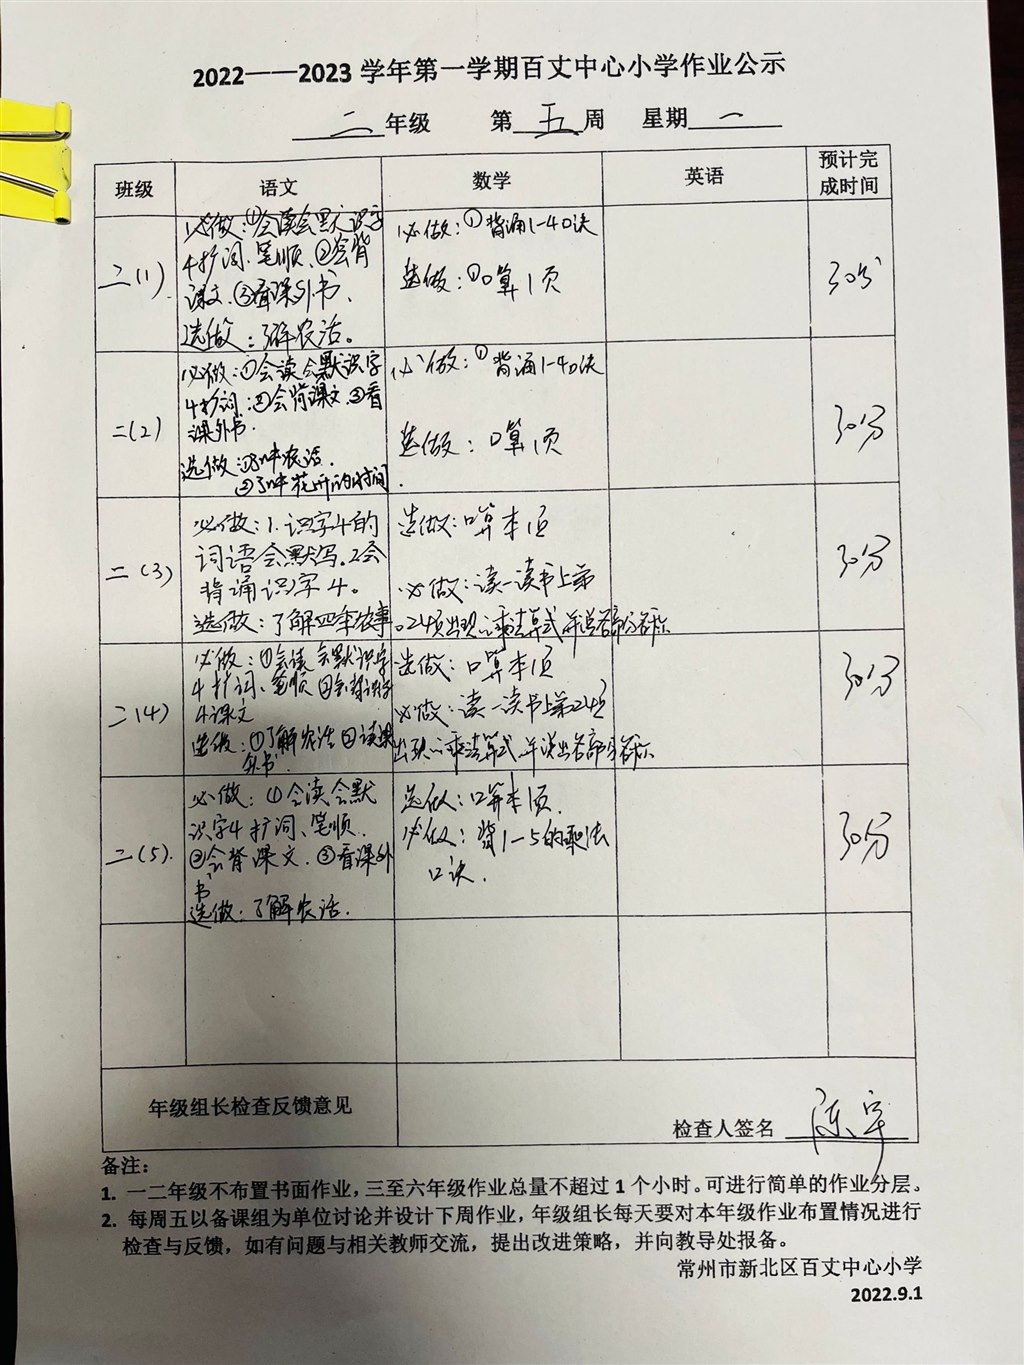 2022——2023 学年第一学期百丈中心小学作业公示
二 年级 第 五 周 星期 一
班级 语文 数学 英语 预计完成时间
二(1)
必做:①会读会默识字
4扩词、笔顺、②会背
课文、③看课外书、
选做:了解农活。
必做:①背诵1-4口诀
选做:①口算1页
30分
二(2)
必做:①会读会默识字
4扩词;②会背课文③看
课外书.
选做:①了解农活.
②了解花开的时间.
必做:①背诵1-4口诀
选做:口算1页
30分
二(3)
必做:1.识字4的
词语会默写。2会
背诵识字4。
选做:了解四季农事。
选做:口算本1页
必做:读一读书上第
24页出现的乘法算式并说各部分名称
30分
二(4)
必做:①会读会默识字
4扩词、笔顺②会背识字
4课文
选做:①了解农活②读课
外书.
选做:口算本1页
必做:读一读书上第24页
出现的乘法算式并说出各部分名称
30分
二(5).
必做:①会读会默
识字4扩词、笔顺.
②会背课文.③看课外
书
选做:了解农活.
选做:口算本1页.
必做:背1-5的乘法
口诀.
30分
年级组长检查反馈意见
检查人签名 陈宇
备注:
1. 一二年级不布置书面作业,三至六年级作业总量不超过 1 个小时。可进行简单的作业分层。
2. 每周五以备课组为单位讨论并设计下周作业,年级组长每天要对本年级作业布置情况进行
检查与反馈,如有问题与相关教师交流,提出改进策略,并向教导处报备。
常州市新北区百丈中心小学
2022.9.1